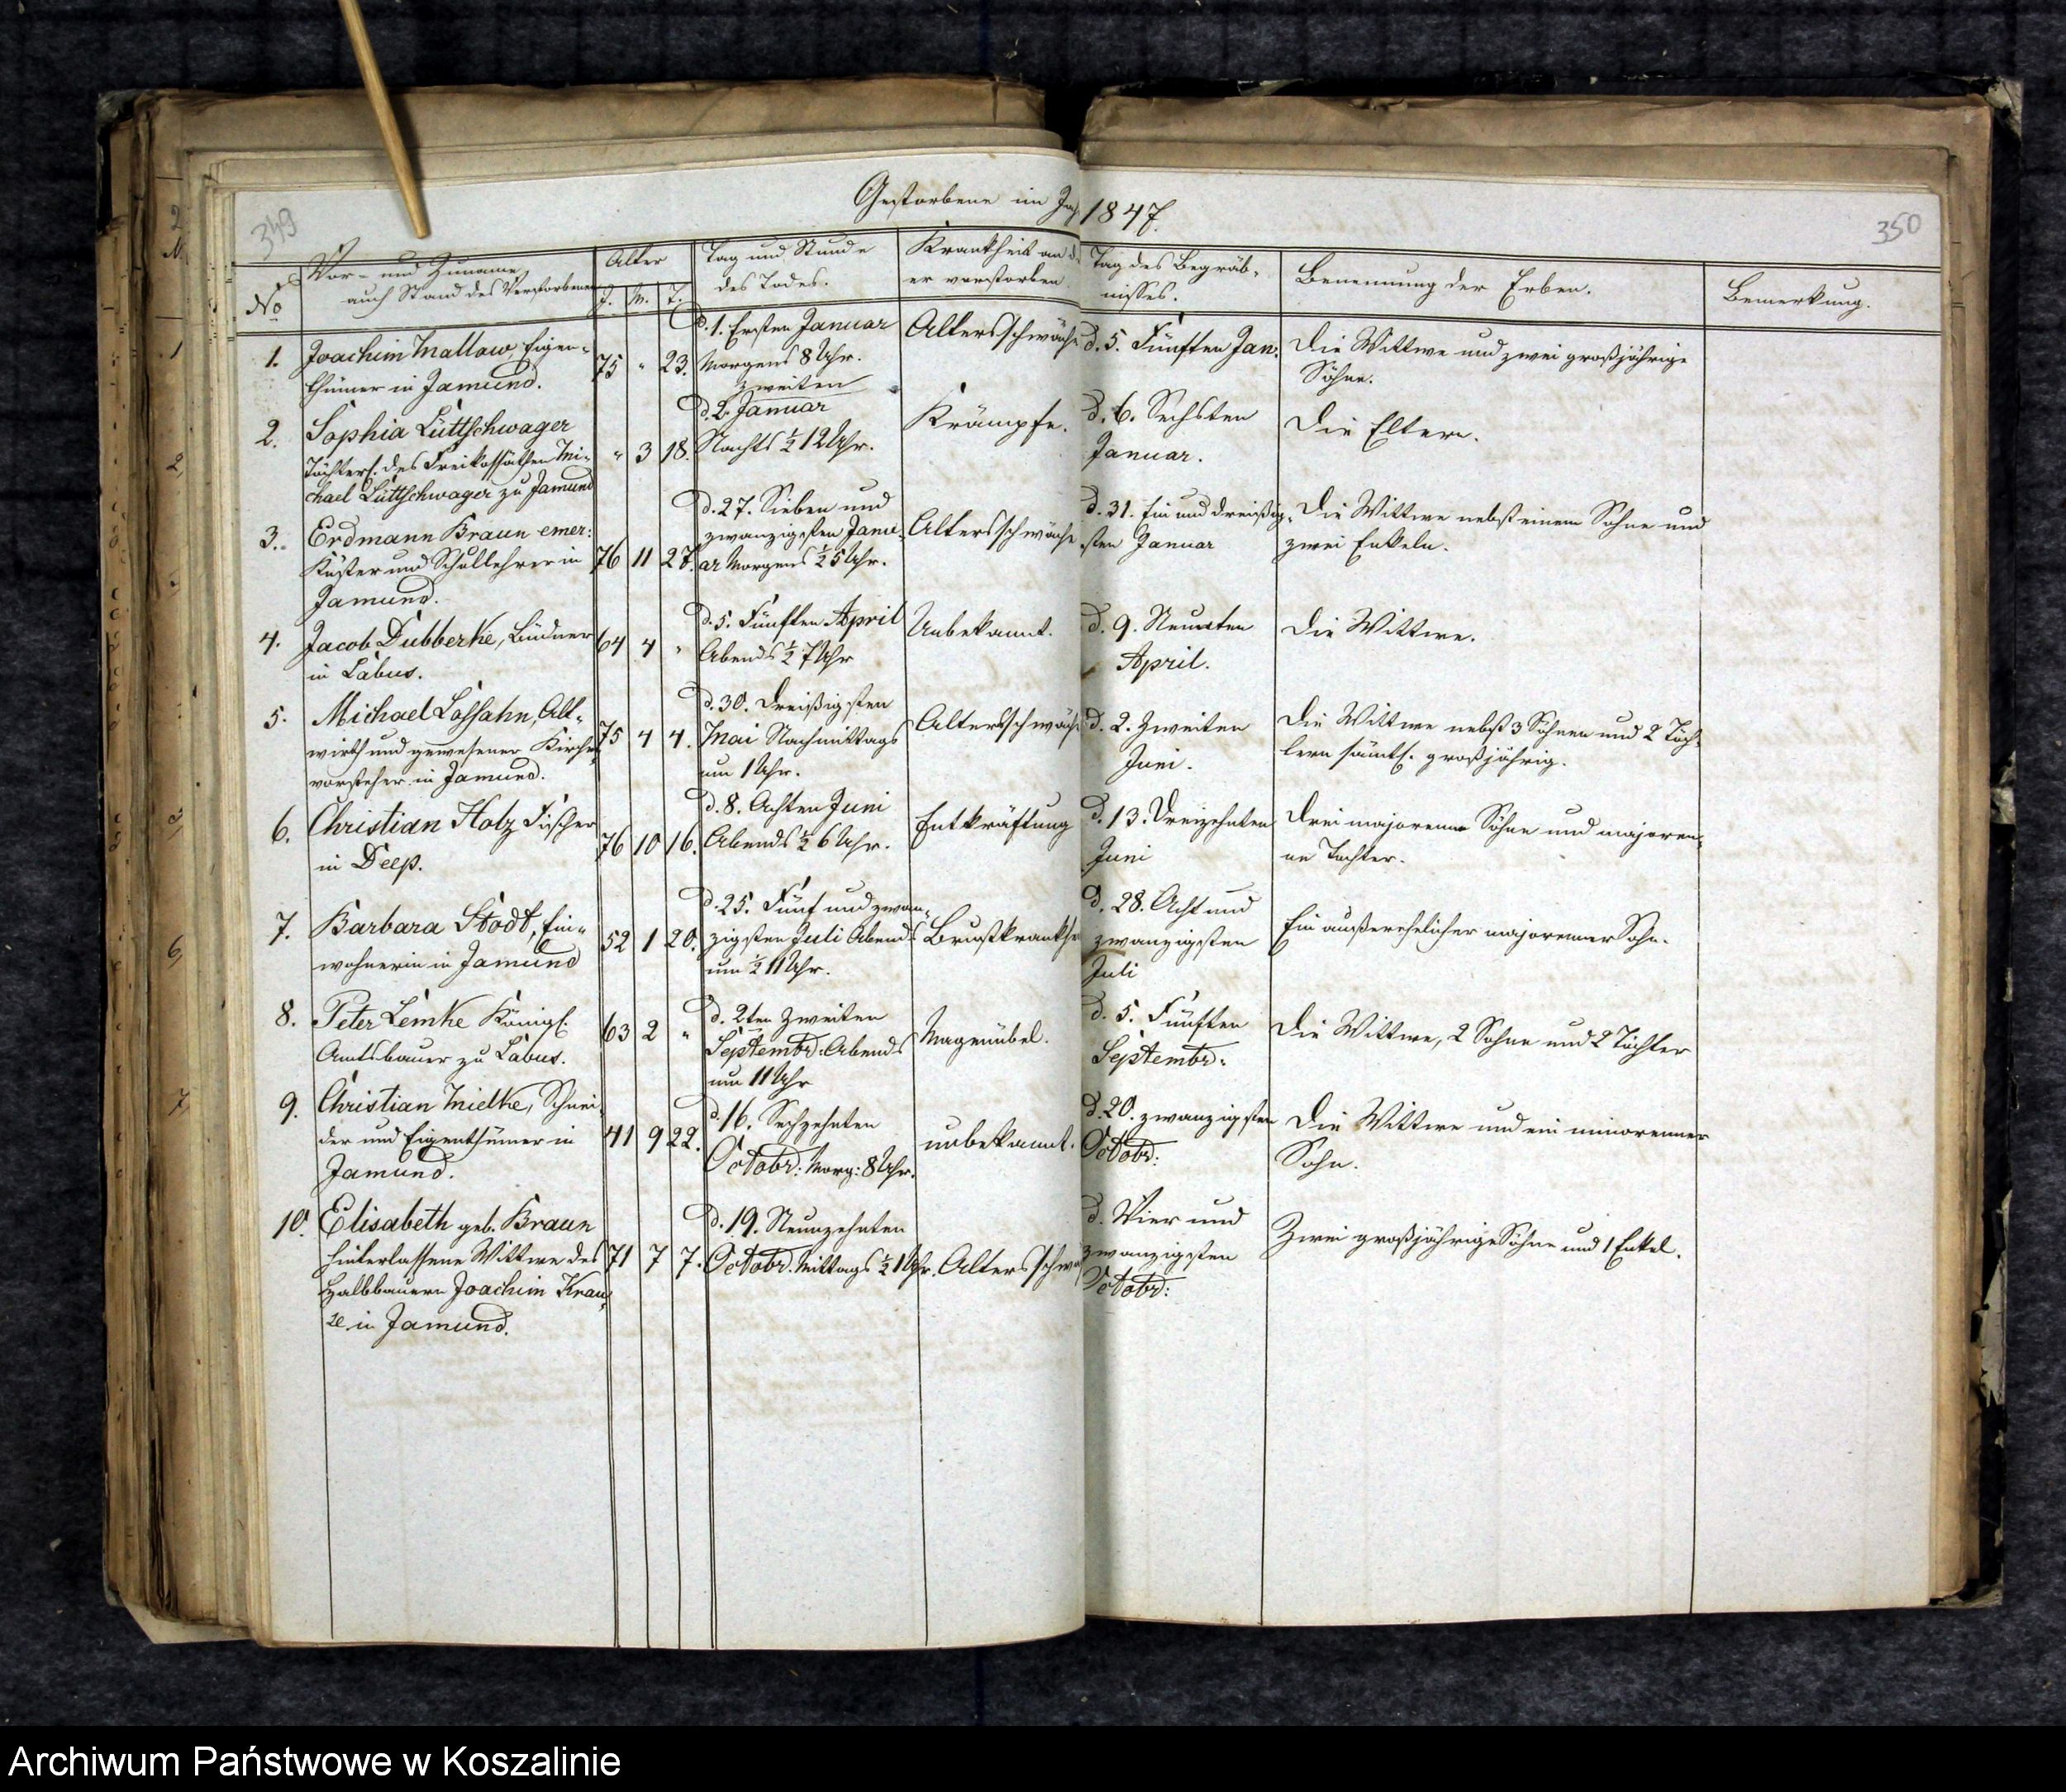 349
350
Gestorbene im Jah
1847.
No
Vor- und Zuname,
auch Stand des Verstorbenen
Alter
J. M. T.
Tag und Stunde
des Todes.
Krankheit an d
er verstorben
Tag des Begräb-
nisses.
Benennung der Erben.
Bemerkung.
1. Joachim Mallow, Eigen-
thümer in Jamund.
75 " 23.
d. 1. Ersten Januar
Morgens 8 Uhr.
Altersschwäche
d. 5. Fünften Jan.
Die Wittwe und zwei großjährige
Söhne.
2. Sophia Lüttschwager
Töchterl. des Freikossäthen Mi-
chael Lüttschwager zu Jamund
" 3 18.
zweiten
d. 2. Januar
Nachts ½ 12 Uhr.
Krämpfe.
d. 6. Sechsten
Januar.
Die Eltern.
3. Erdmann Braun emer:
Küster und Schullehrer in
Jamund.
76 11 27.
d. 27. Sieben und
zwanzigsten Janu-
ar Morgens ½ 5 Uhr.
Altersschwäche
d. 31. Ein und dreißig-
sten Januar
Die Wittwe nebst einem Sohne und
zwei Enkeln.
4. Jacob Dubberke, Büdner
in Labus.
64 4 "
d. 5. Fünften April
Abends ½ 7 Uhr
Unbekannt.
d. 9. Neunten
April.
Die Wittwe.
5. Michael Lassahn, Alt-
wirth und gewesener Kirchen
vorsteher in Jamund.
75 4 4.
d. 30. Dreißigsten
Mai Nachmittags
um 1 Uhr.
Altersschwäch
d. 2. Zweiten
Juni.
Die Wittwe nebst 3 Söhnen und 2 Töch-
tern sämtl. großjährig.
6. Christian Holz Fischer
in Deep.
76 10 16.
d. 8. Achten Juni
Abends ½ 6 Uhr.
Entkräftung
d. 13. Dreizehnten
Juni
Drei majorenne Söhne und majoren-
ne Tochter.
7. Barbara Stodt, Ein-
wohnerin in Jamund
52 1 20.
d. 25. Fünf und zwan-
zigsten Juli Abends
um ½ 11 Uhr.
Brustkrankhe
d. 28. Acht und
zwanzigsten
Juli
Ein außerehelicher majorenner Sohn.
8. Peter Lemke Königl.
Amtsbauer zu Labus.
63 2 "
d. 2ten Zweiten
Septembr. Abends
um 11 Uhr
Magenübel.
d. 5. Fünften
Septembr:
Die Wittwe, 2 Söhne und 2 Töchter
9. Christian Mielke, Schnei-
der und Eigenthümer in
Jamund.
41 9 22.
d. 16. Sechzehnten
Octobr: Morg: 8 Uhr.
unbekannt.
d. 20. zwanzigsten
Octobr:
Die Wittwe und ein minorenner
Sohn.
10. Elisabeth geb. Braun
hinterlassene Wittwe des
Halbbauern Joachim Krau-
se in Jamund.
71 7 7.
d. 19. Neunzehnten
Octobr. Mittags ½ 1 Uhr.
Altersschwä
d. Vier und
zwanzigsten
Octobr:
Zwei großjährige Söhne und 1 Enkel.
Archiwum Państwowe w Koszalinie